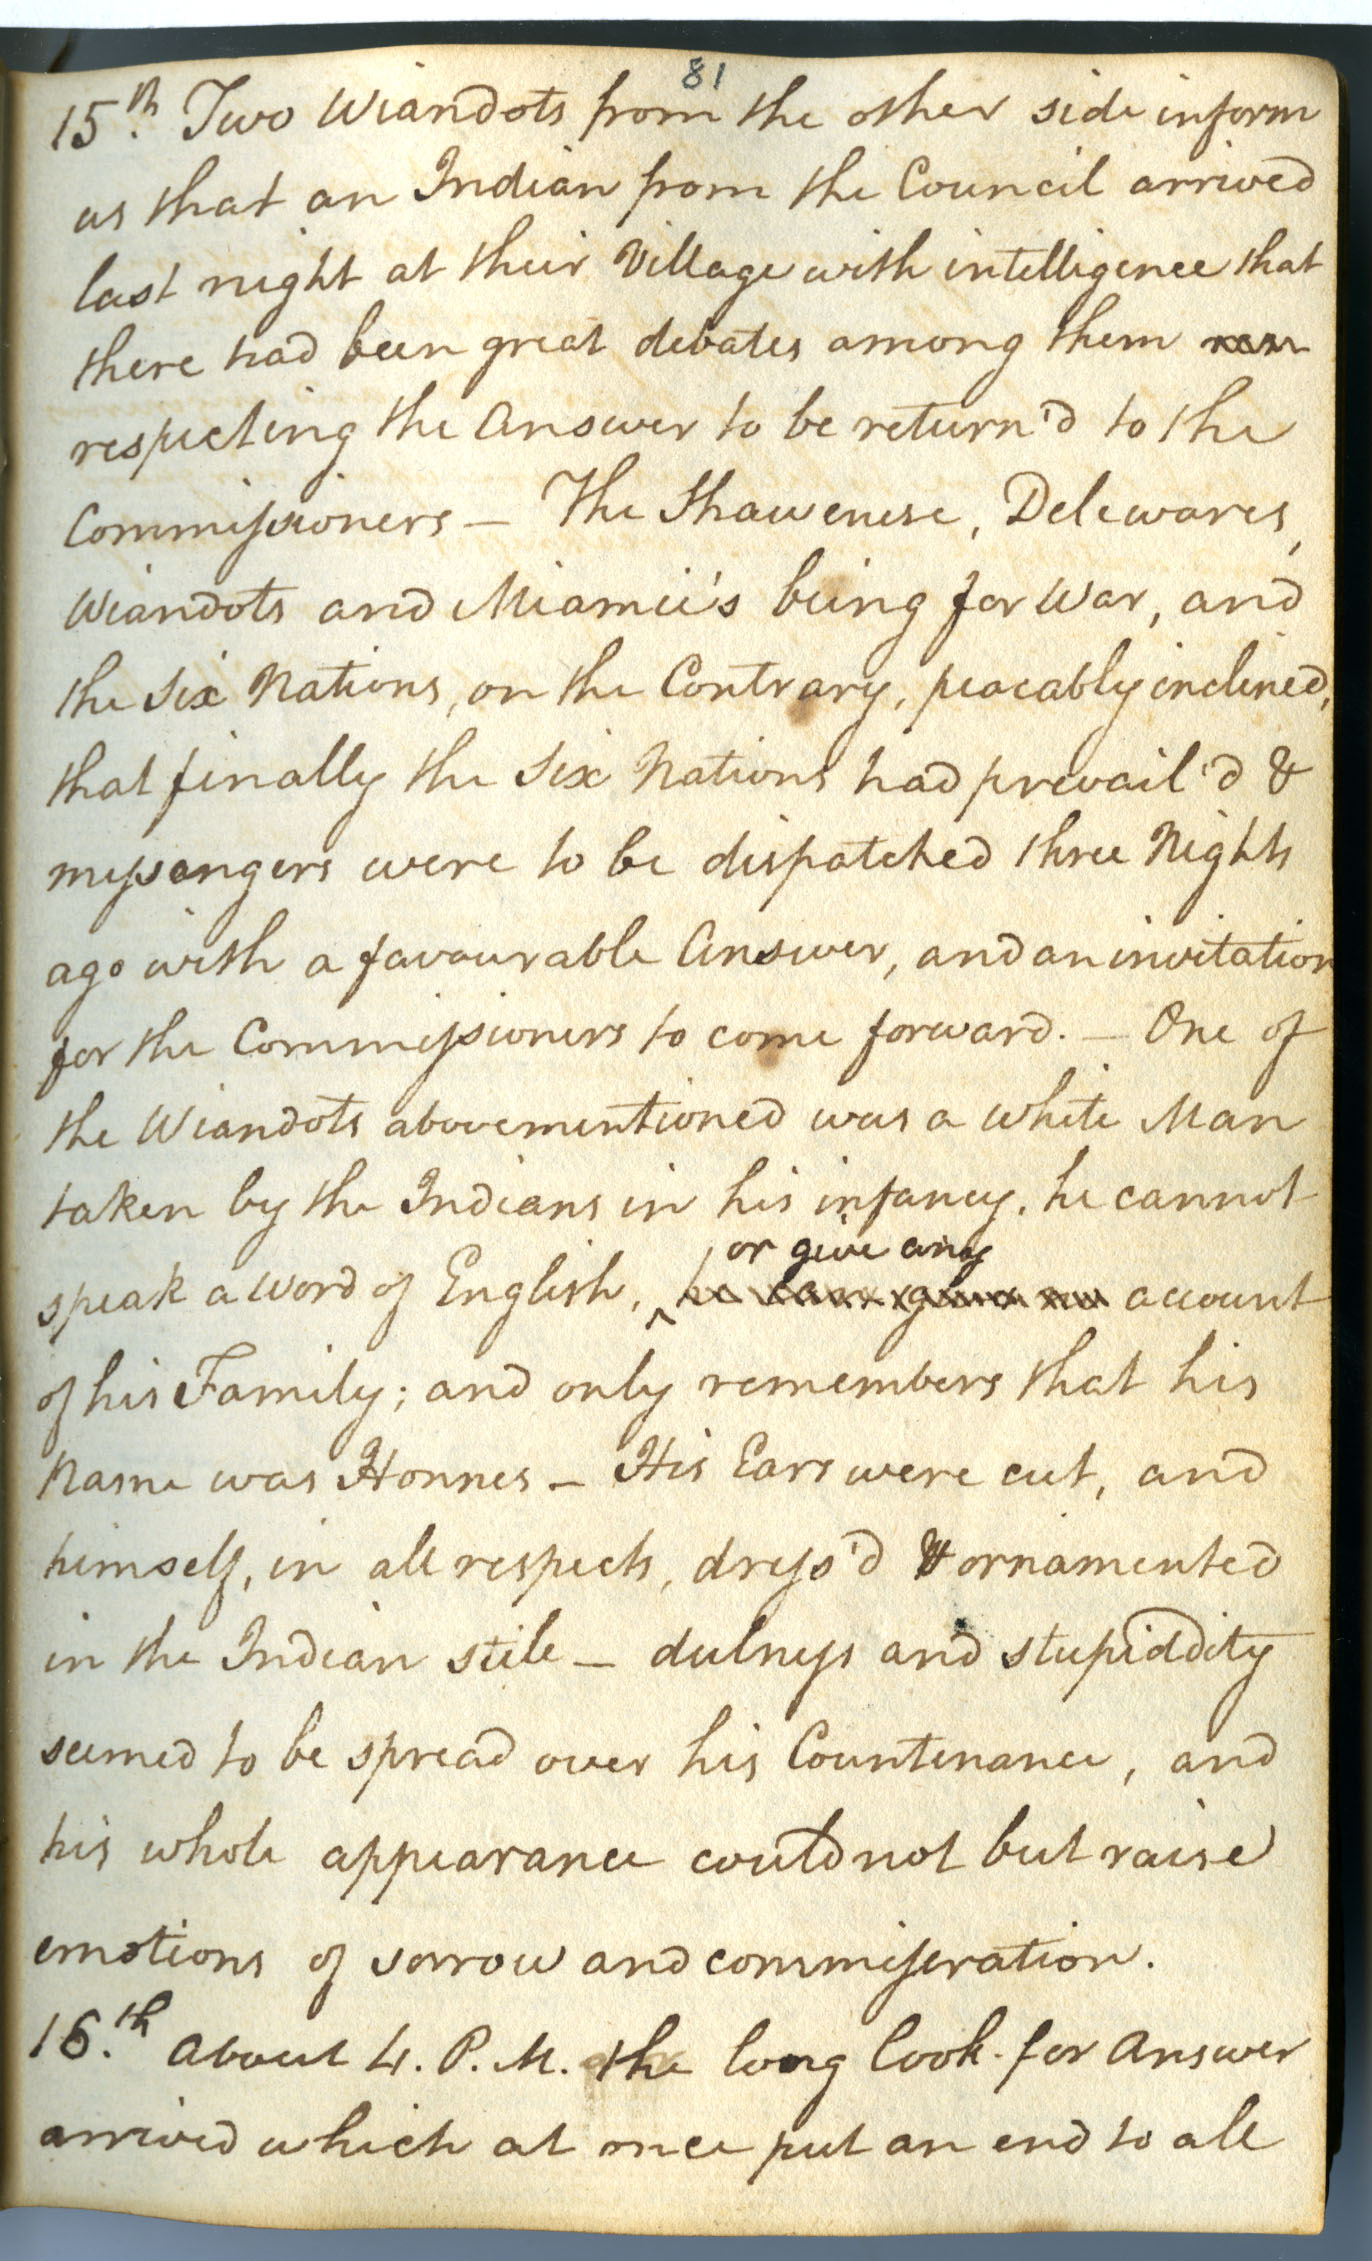 81
15th. Two Wiandots from the other side inform
us that an Indian from the Council arrived
last night at their Village with intelligence that
there had been great debates among them
respecting the Answer to be return'd to the
Commissioners — The Shawenese, Delewares,
Wiandots and Miamii's being for War, and
the Six Nations, on the Contrary, peacably inclined,
that finally the Six Nations had prevail'd &
messengers were to be dispatched three Nights
ago with a favourable Answer, and an invitation
for the Commissioners to come forward. — One of
the Wiandots abovementioned was a White Man
taken by the Indians in his infancy. he cannot
or give any
speak a word of English, ^ he can give no account
of his Family; and only remembers that his
Name was Honnes — His Ears were cut, and
himself, in all respects, dress'd & ornamented
in the Indian stile — dulness and stupiddity
seemed to be spread over his Countenance, and
his whole appearance could not but raise
emotions of sorrow and commiseration.
16.th About 4. P. M. the long look-for Answer
arrived which at once put an end to all